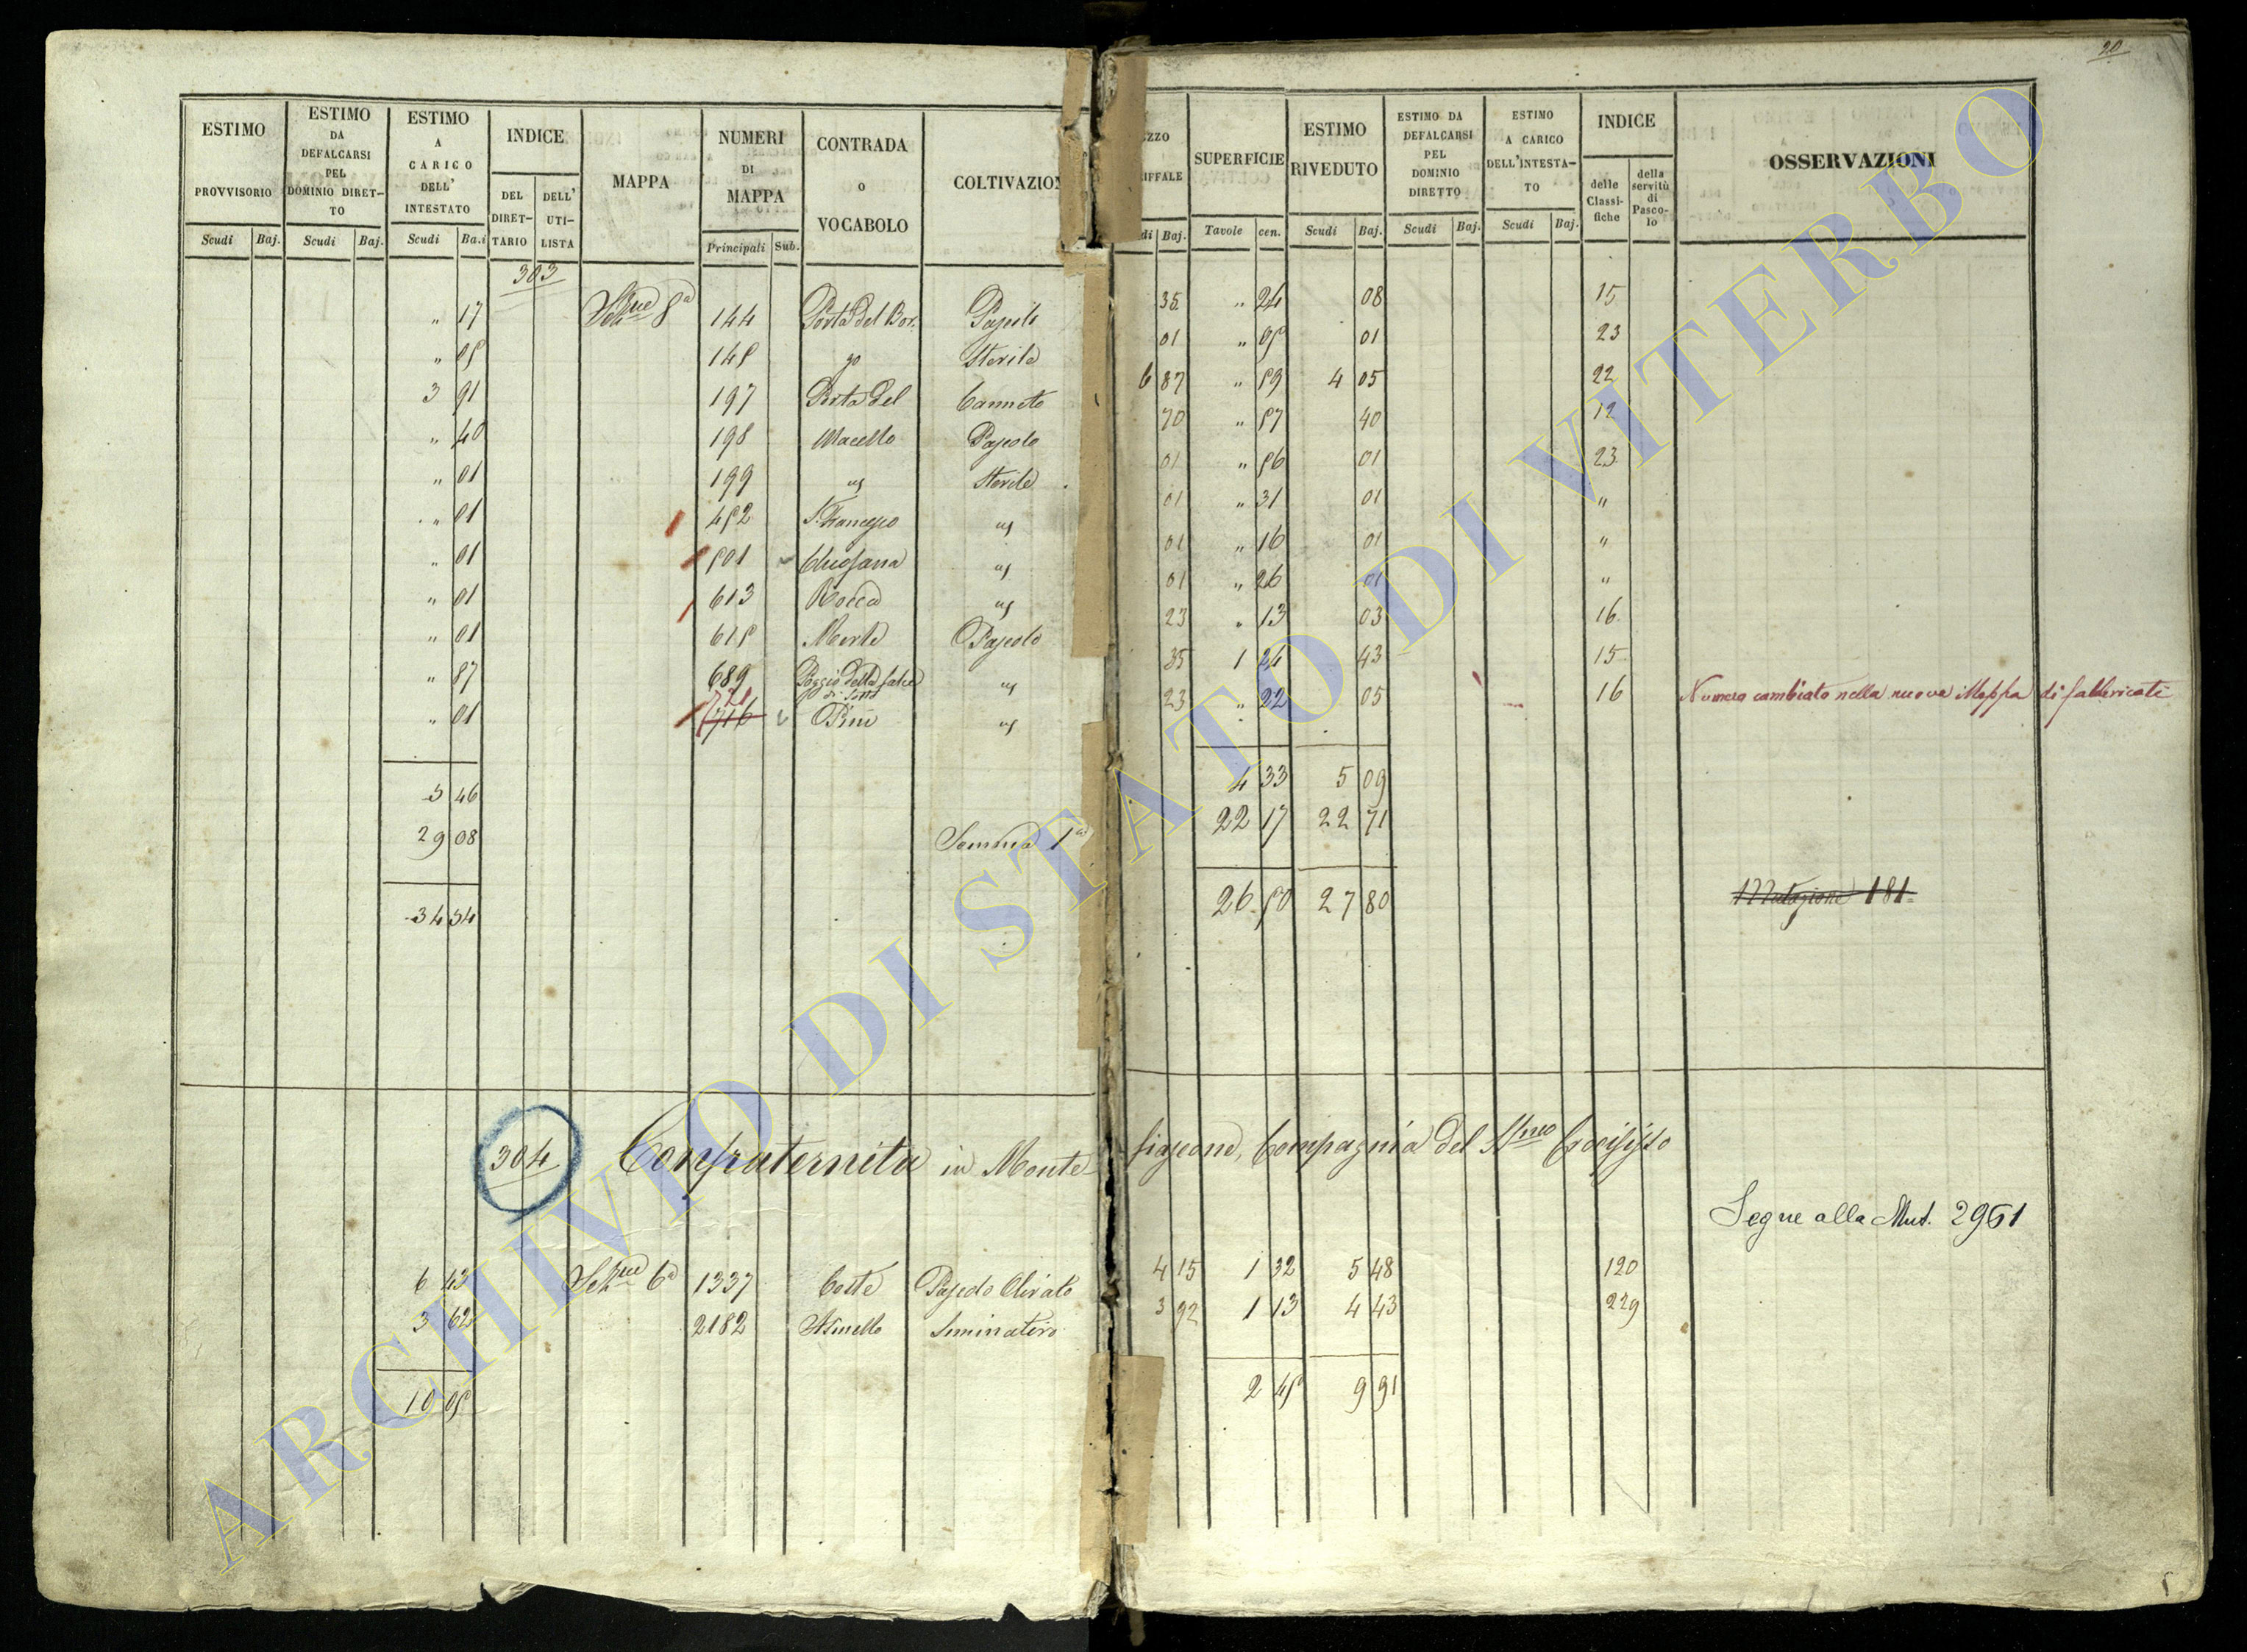 20
ESTIMO PROVVISORIO
ESTIMO DA DEFALCARSI PEL DOMINIO DIRET-TO
ESTIMO A CARICO DELL' INTESTATO
INDICE
DEL DIRET-TARIO
DELL' UTI-LISTA
MAPPA
NUMERI DI MAPPA
CONTRADA O VOCABOLO
COLTIVAZION
EZZO RIFFALE
SUPERFICIE
ESTIMO RIVEDUTO
ESTIMO DA DEFALCARSI PEL DOMINIO DIRETTO
ESTIMO A CARICO DELL'INTESTA-TO
INDICE
delle Classi-fiche
della servitù di Pasco-lo
OSSERVAZIONI
Scudi Baj. Scudi Baj. Scudi Ba.i Principali Sub. di Baj. Tavole cen. Scudi Baj. Scudi Baj. Scudi Baj.
303
" 17 Sezne 8a 144 Porta del Bor. Pascolo 35 " 24 08 15
" 05 145 go Sterile 01 " 05 01 23
3 91 197 Porta del Canneto 6 87 " 59 4 05 22
" 40 198 Macello Pascolo 70 " 57 40 12
" 01 199 us Sterile 01 " 56 01 23
" 01 452 S. Francesco us 01 " 31 01 "
" 01 501 us 01 " 16 01 "
" 01 613 Rocca us 01 " 26 01 "
" 01 615 Merle Pascolo 23 " 13 03 16
" 87 689 Poggio della di sotto us 35 1 24 43 15
" 01 716 Pini us 23 " 22 05 16 Numero cambiato nella nuova Mappa di fabbricati
5 46 4 33 5 09
29 08 Somma 1a 22 17 22 71
34 54 26 50 27 80 Mutazione 181
304 Confraternita in Montefiascone, Compagnia del SSmo Crocifisso
Segue alla Mut. 2961
6 43 Sezne 6a 1337 Coste Pascolo Olivato 4 15 1 32 5 48 120
3 62 2182 Asinello Seminativo 3 92 1 13 4 43 229
10 05 2 45 9 91
ARCHIVIO DI STATO DI VITERBO